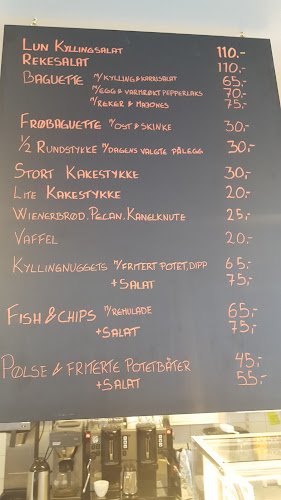 LUN KYLLINGSALAT 110.-
REKESALAT 110.-
BAGUETTE M/KYLLING & KARRISALAT 65.-
M/EGG & VARMRØKT PEPPERLAKS 70.-
M/REKER & MAJONES 75.-
FRØBAGUETTE M/OST & SKINKE 30,-
1/2 RUNDSTYKKE M/DAGENS VALGTE PÅLEGG 30,-
STORT KAKESTYKKE 30,-
LITE KAKESTYKKE 20.-
WIENERBRØD. PECAN. KANELKNUTE 25,-
VAFFEL 20.-
KYLLINGNUGGETS M/FRITERT POTET, DIPP 65.-
+ SALAT 75,-
FISH & CHIPS M/REMULADE 65,-
+ SALAT 75,-
PØLSE & FRITERTE POTETBÅTER 45.-
+ SALAT 55.-